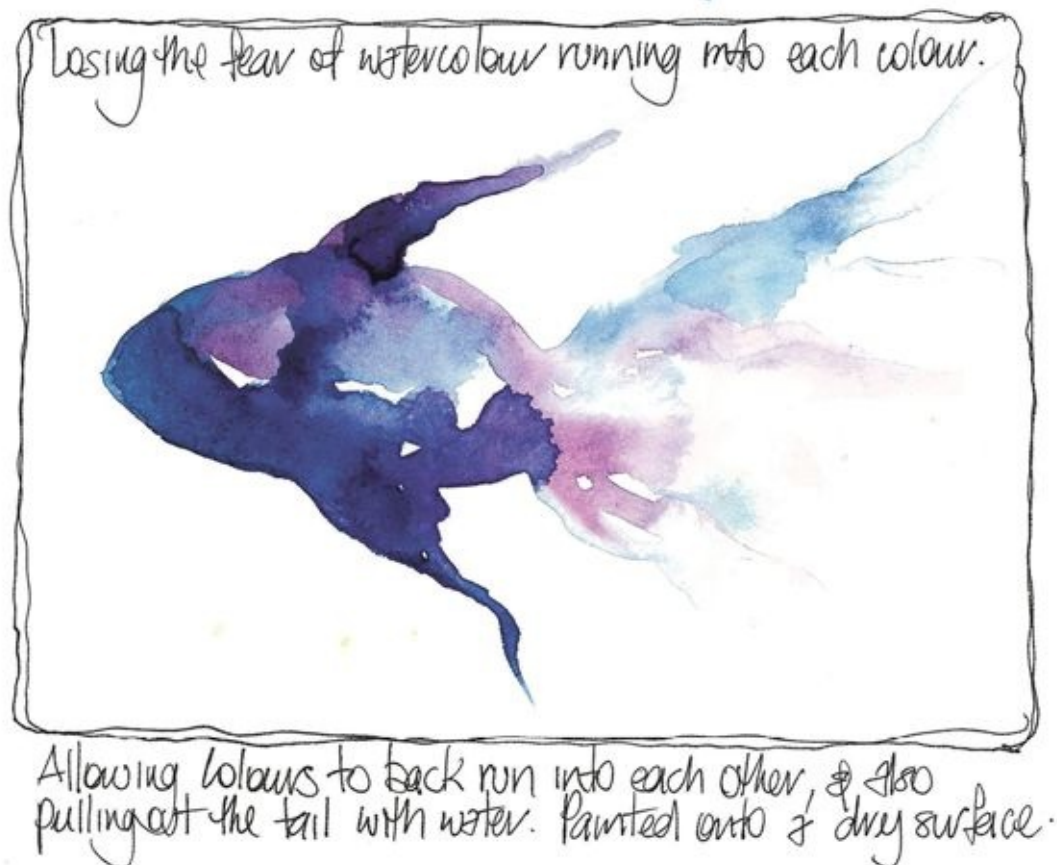 Losing the fear of watercolour running into each colour.
Allowing colours to back run into each other, & also
pulling out the tail with water. Painted onto a dry surface.